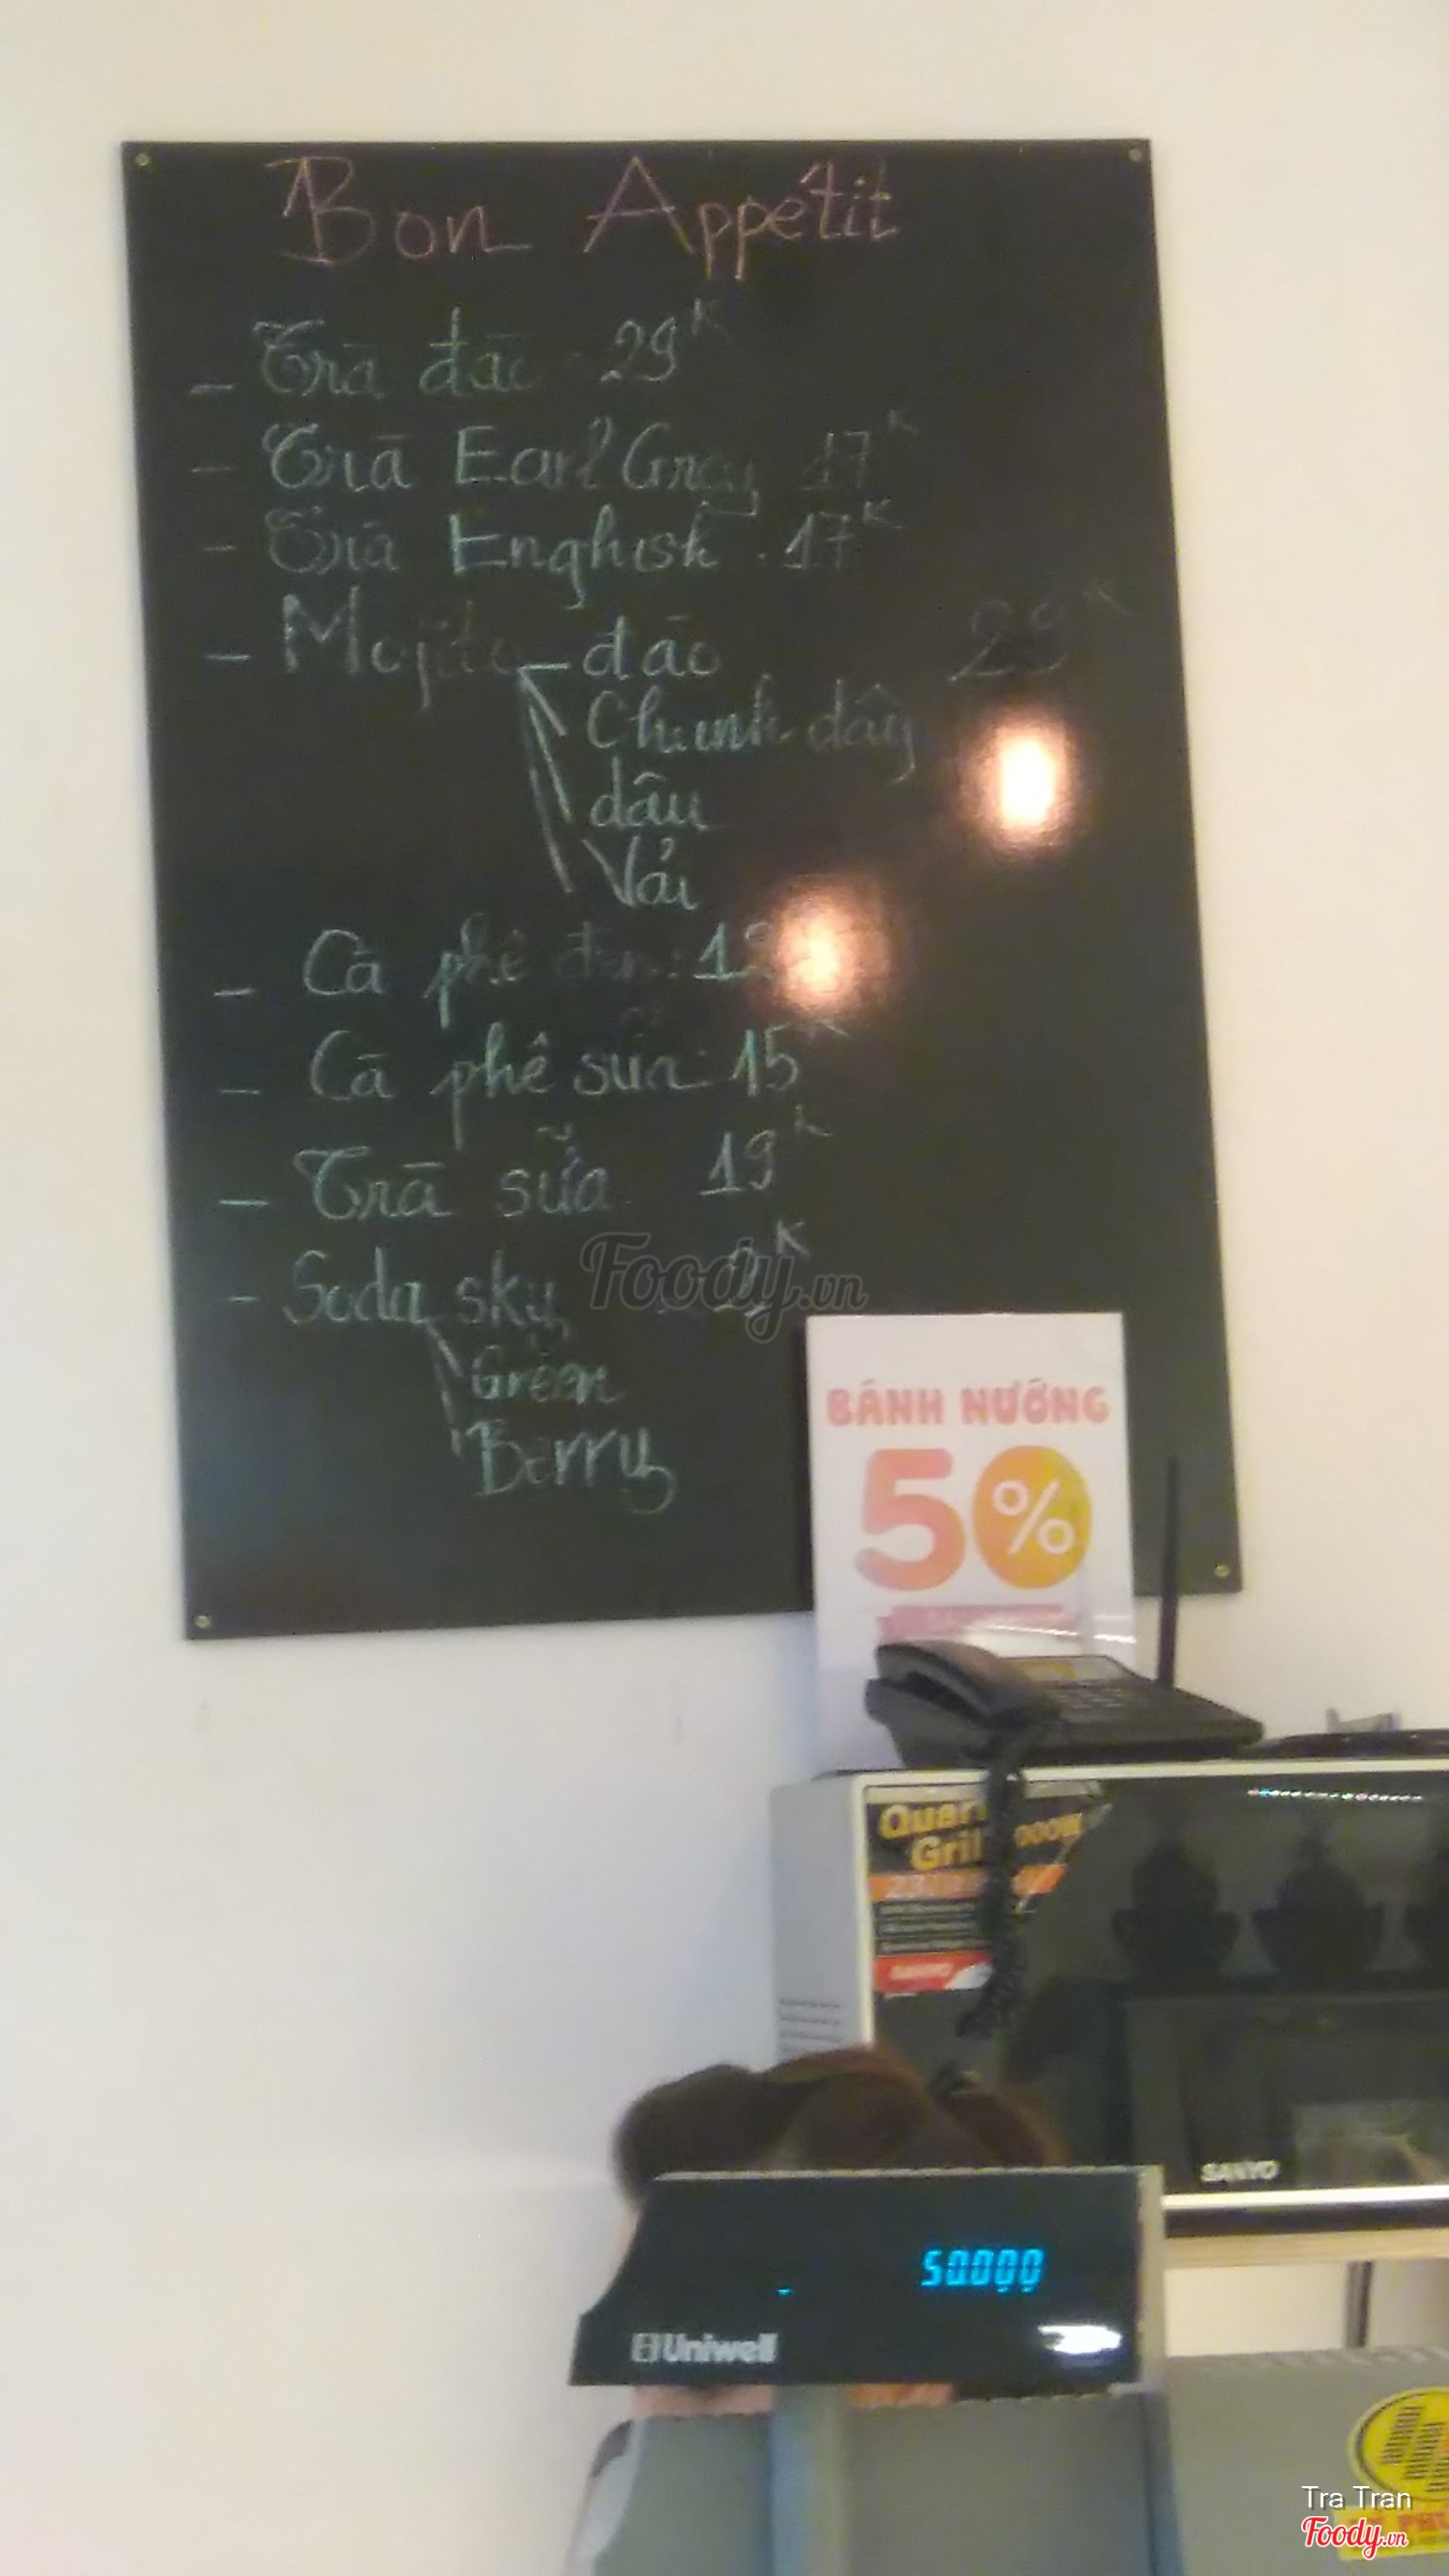 Bon Appétit
- Trà đào 29K
- Trà Earl Gray 17K
- Trà Enghish 17K
- Mojito - đào 29K
Chanh dây
dâu
Vải
- Cà phê đen:
- Cà phê sữa: 15K
- Trà sữa 19K
- Soda sky
Green
Berry
Foody.vn
BÁNH NƯỚNG
50%
Grill
SANYO
SANYO
50.000
Uniwell
Tra Tran
Foody.vn